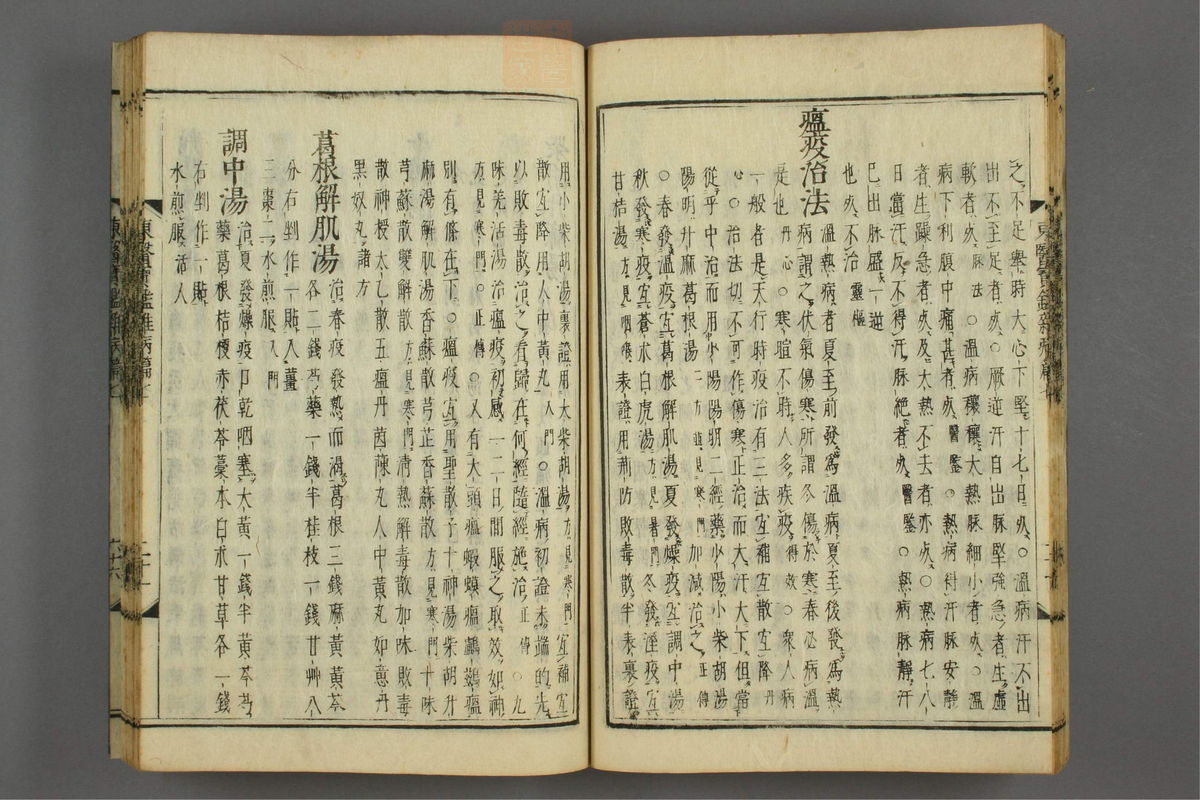 之不足擧時大心下堅十七日死○溫病汗不出
出不至足者死○厥逆汗自出脉堅強急者生虛
軟者死脉法○溫病穰穰大熱脉細小者死○溫
病下利腹中痛甚者死醫鑒○熱病得汗脉安靜
者生躁急者死及大熱不去者亦死○熱病七八
日當汗反不得汗脉絕者死醫鑒○熱病脉靜汗
已出脉盛一逆
也死不治靈樞
瘟疫治法
溫熱病者夏至前發爲溫病夏至後發爲熱
病謂之伏氣傷寒所謂冬傷於寒春必病溫
是也丹心○寒暄不時人多疾疫得效○衆人病
一般者是天行時疫治有三法宜補宜散宜降丹
心○治法切不可作傷寒正治而大汗大下但當
從乎中治而用少陽陽明二經藥少陽小柴胡湯
陽明升麻葛根湯二方並見寒門加減治之正傳
○春發溫疫宜葛根解肌湯夏發燥疫宜調中湯
秋發寒疫宜蒼朮白虎湯方見暑門冬發溼疫宜
甘桔湯方見咽喉表證用荊防敗毒散半表裏證
東醫寶鑑雜病篇七
用小柴胡湯裏證用大柴胡湯方見寒門宜補宜
散宜降用人中黃丸入門○溫病初證未端的先
以敗毒散治之看歸在何經隨經施治正傳○九
味羌活湯治瘟疫初感一二日間服之取效如神
方見寒門○正傳○又有大頭瘟蝦蟆瘟鸕鶿瘟
別有條在下○瘟疫宜用聖散子十神湯柴胡升
麻湯解肌湯香蘇散芎芷香蘇散方見寒門十味
芎蘇散雙解散方見寒門淸熱解毒散加味敗毒
散神授太乙散五瘟丹茵蔯丸人中黃丸如意丹
黑奴丸諸方
葛根解肌湯
治春疫發熱而渴葛根三錢麻黃黃芩
各二錢芍藥一錢半桂枝一錢甘艸八
分右剉作一貼入薑
三棗二水煎服入門
調中湯
治夏發燥疫口乾咽塞大黃一錢半黃芩芍
藥葛根桔梗赤茯苓藁本白朮甘草各一錢
右剉作一貼
水煎服活人
東醫寶鑑雜病篇七